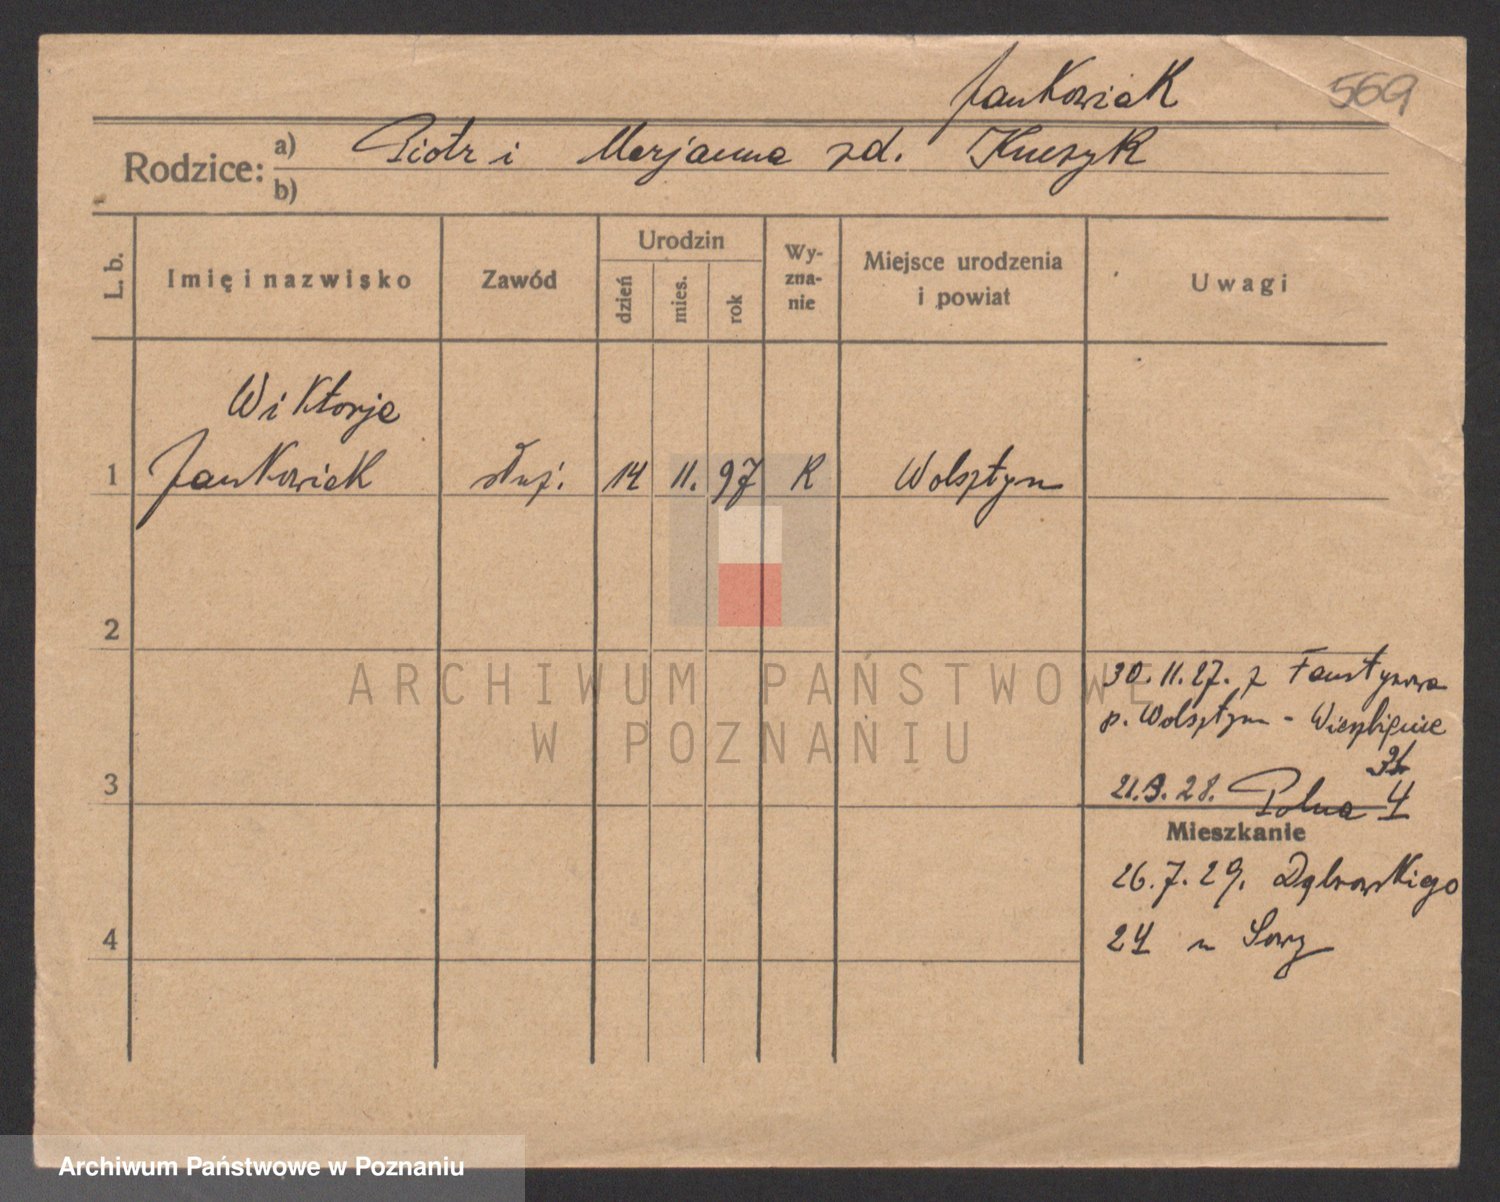 Jankowiak 569
Rodzice: a) Piotr i Marjanna zd.
b)
L. b.
Imię i nazwisko
Zawód
Urodzin
dzień
mies.
rok
Wy-
zna-
nie
Miejsce urodzenia
i powiat
Uwagi
Wiktorja
1 Jankowiak służ. 14 11. 97 R Wolsztyn
2
3
4
30.11.27. z Faustynowa
p. Wolsztyn - Wierzbięcice
21.9.28. Polna 4
Mieszkanie
26.7.29. Dąbrowskiego
24 u Sowy
ARCHIWUM PAŃSTWOWE
W POZNANIU
Archiwum Państwowe w Poznaniu